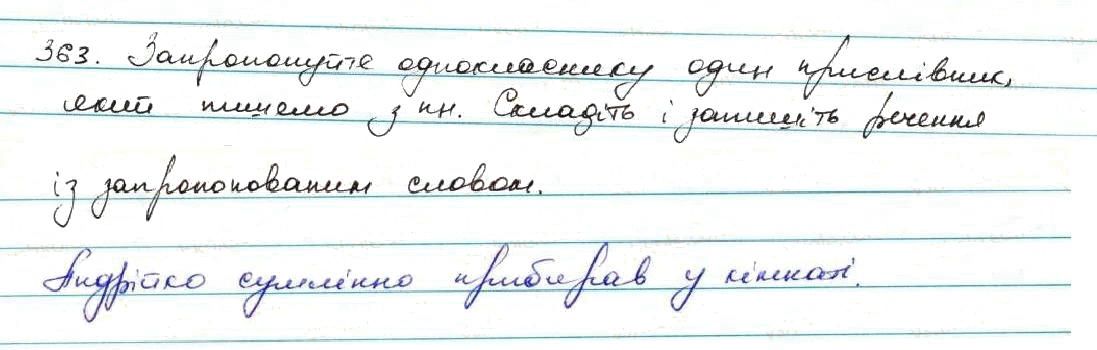 363. Запропонуйте однокласнику один прислівник,
який пишемо з нн. Складіть і запишіть речення
із запропонованим словом.
Андрійко сумлінно прибирав у кімнаті.